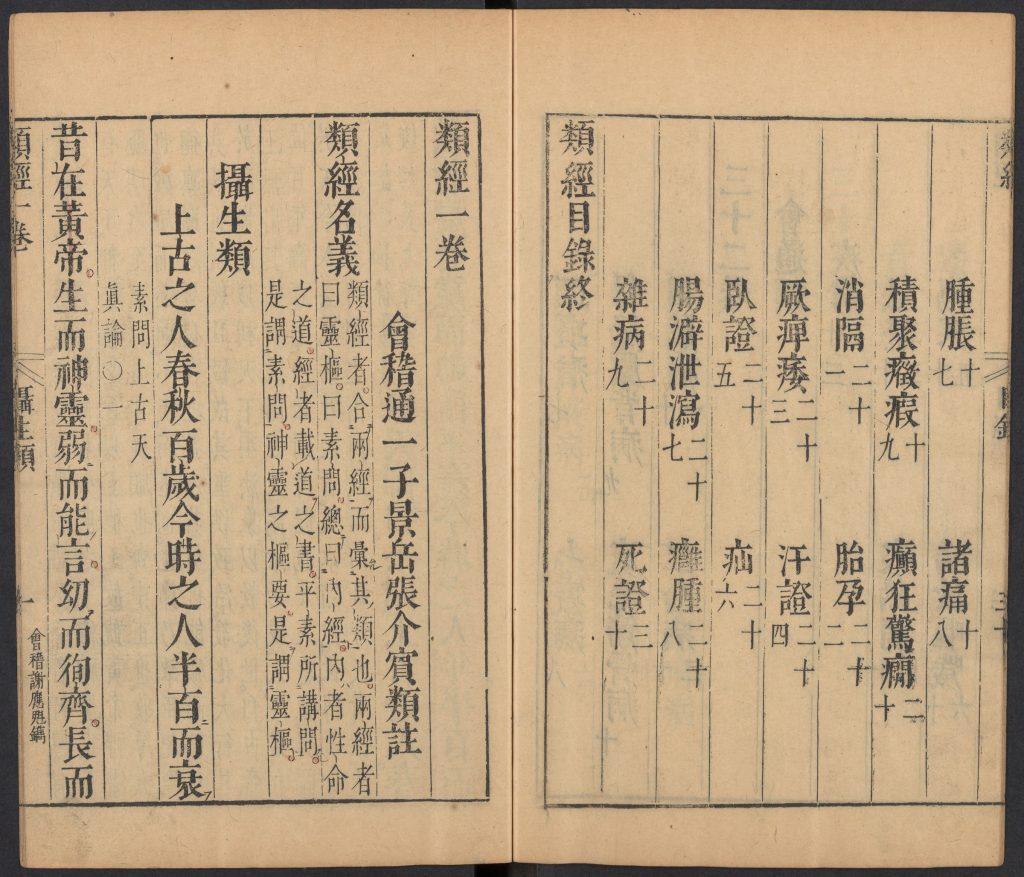 類經
目錄
三十
腫脹十七
諸痛十八
積聚癥瘕十九
癲狂驚癇二十
消隔二十一
胎孕二十二
厥痺痿二十三
汗證二十四
臥證二十五
疝二十六
腸澼泄瀉二十七
癰腫二十八
雜病二十九
死證三十
類經目錄終
類經一卷
會稽通一子景岳張介賓類註
類經名義
類經者。合兩經而彙其類也。兩經者
曰靈樞。曰素問。總曰內經。內者性命
之道。經者載道之書。平素所講問。
是謂素問。神靈之樞要。是謂靈樞。
攝生類
上古之人春秋百歲今時之人半百而衰
素問上古天
眞論〇一
昔在黃帝。生而神靈。弱而能言。幼而徇齊。長而
類經一卷
攝生類
一
會稽謝應魁鐫